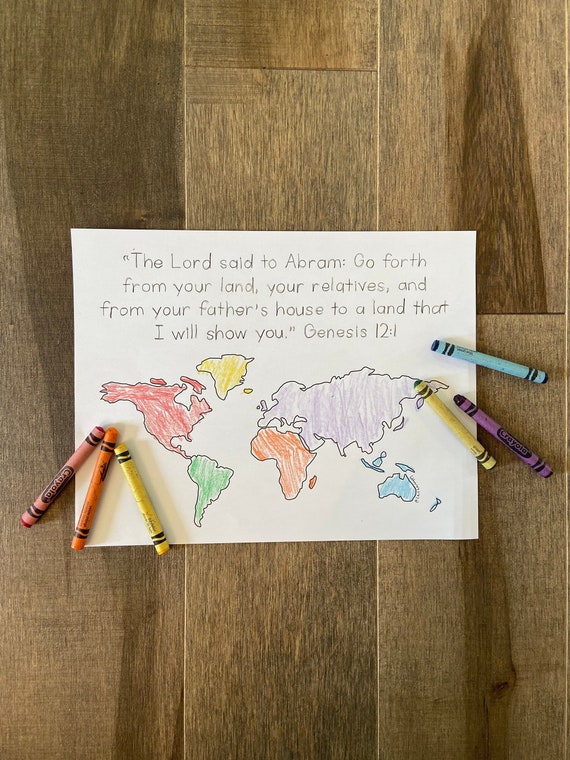 "The Lord said to Abram: Go forth
from your land, your relatives, and
from your father's house to a land that
I will show you." Genesis 12:1
Crayola